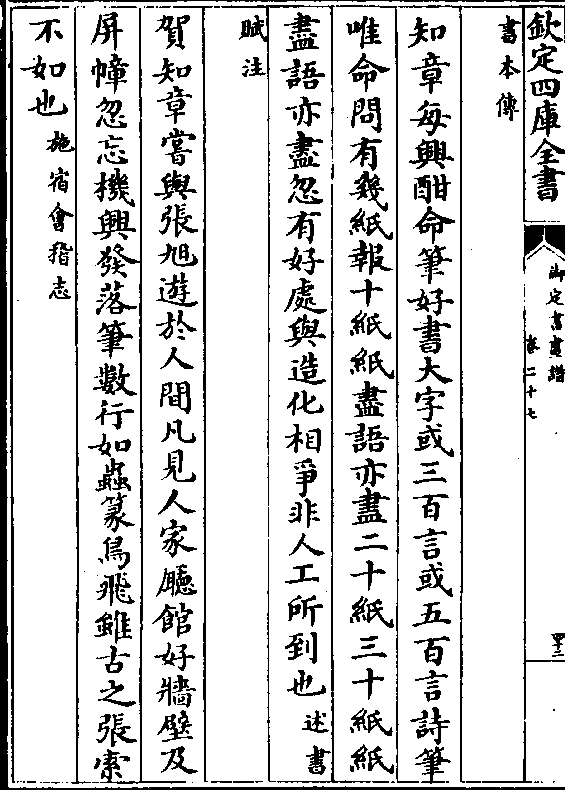 欽定四庫全書
御定書畫譜
卷二十七
四十三
書本傳
知章每興酣命筆好書大字或三百言或五百言詩筆
唯命問有幾紙報十紙紙盡語亦盡二十紙三十紙紙
盡語亦盡忽有好處與造化相爭非人工所到也述書
賦注
賀知章嘗與張旭遊於人間凡見人家廳館好牆壁及
屏幛忽忘機興發落筆數行如蟲篆鳥飛雖古之張索
不如也施宿會稽志